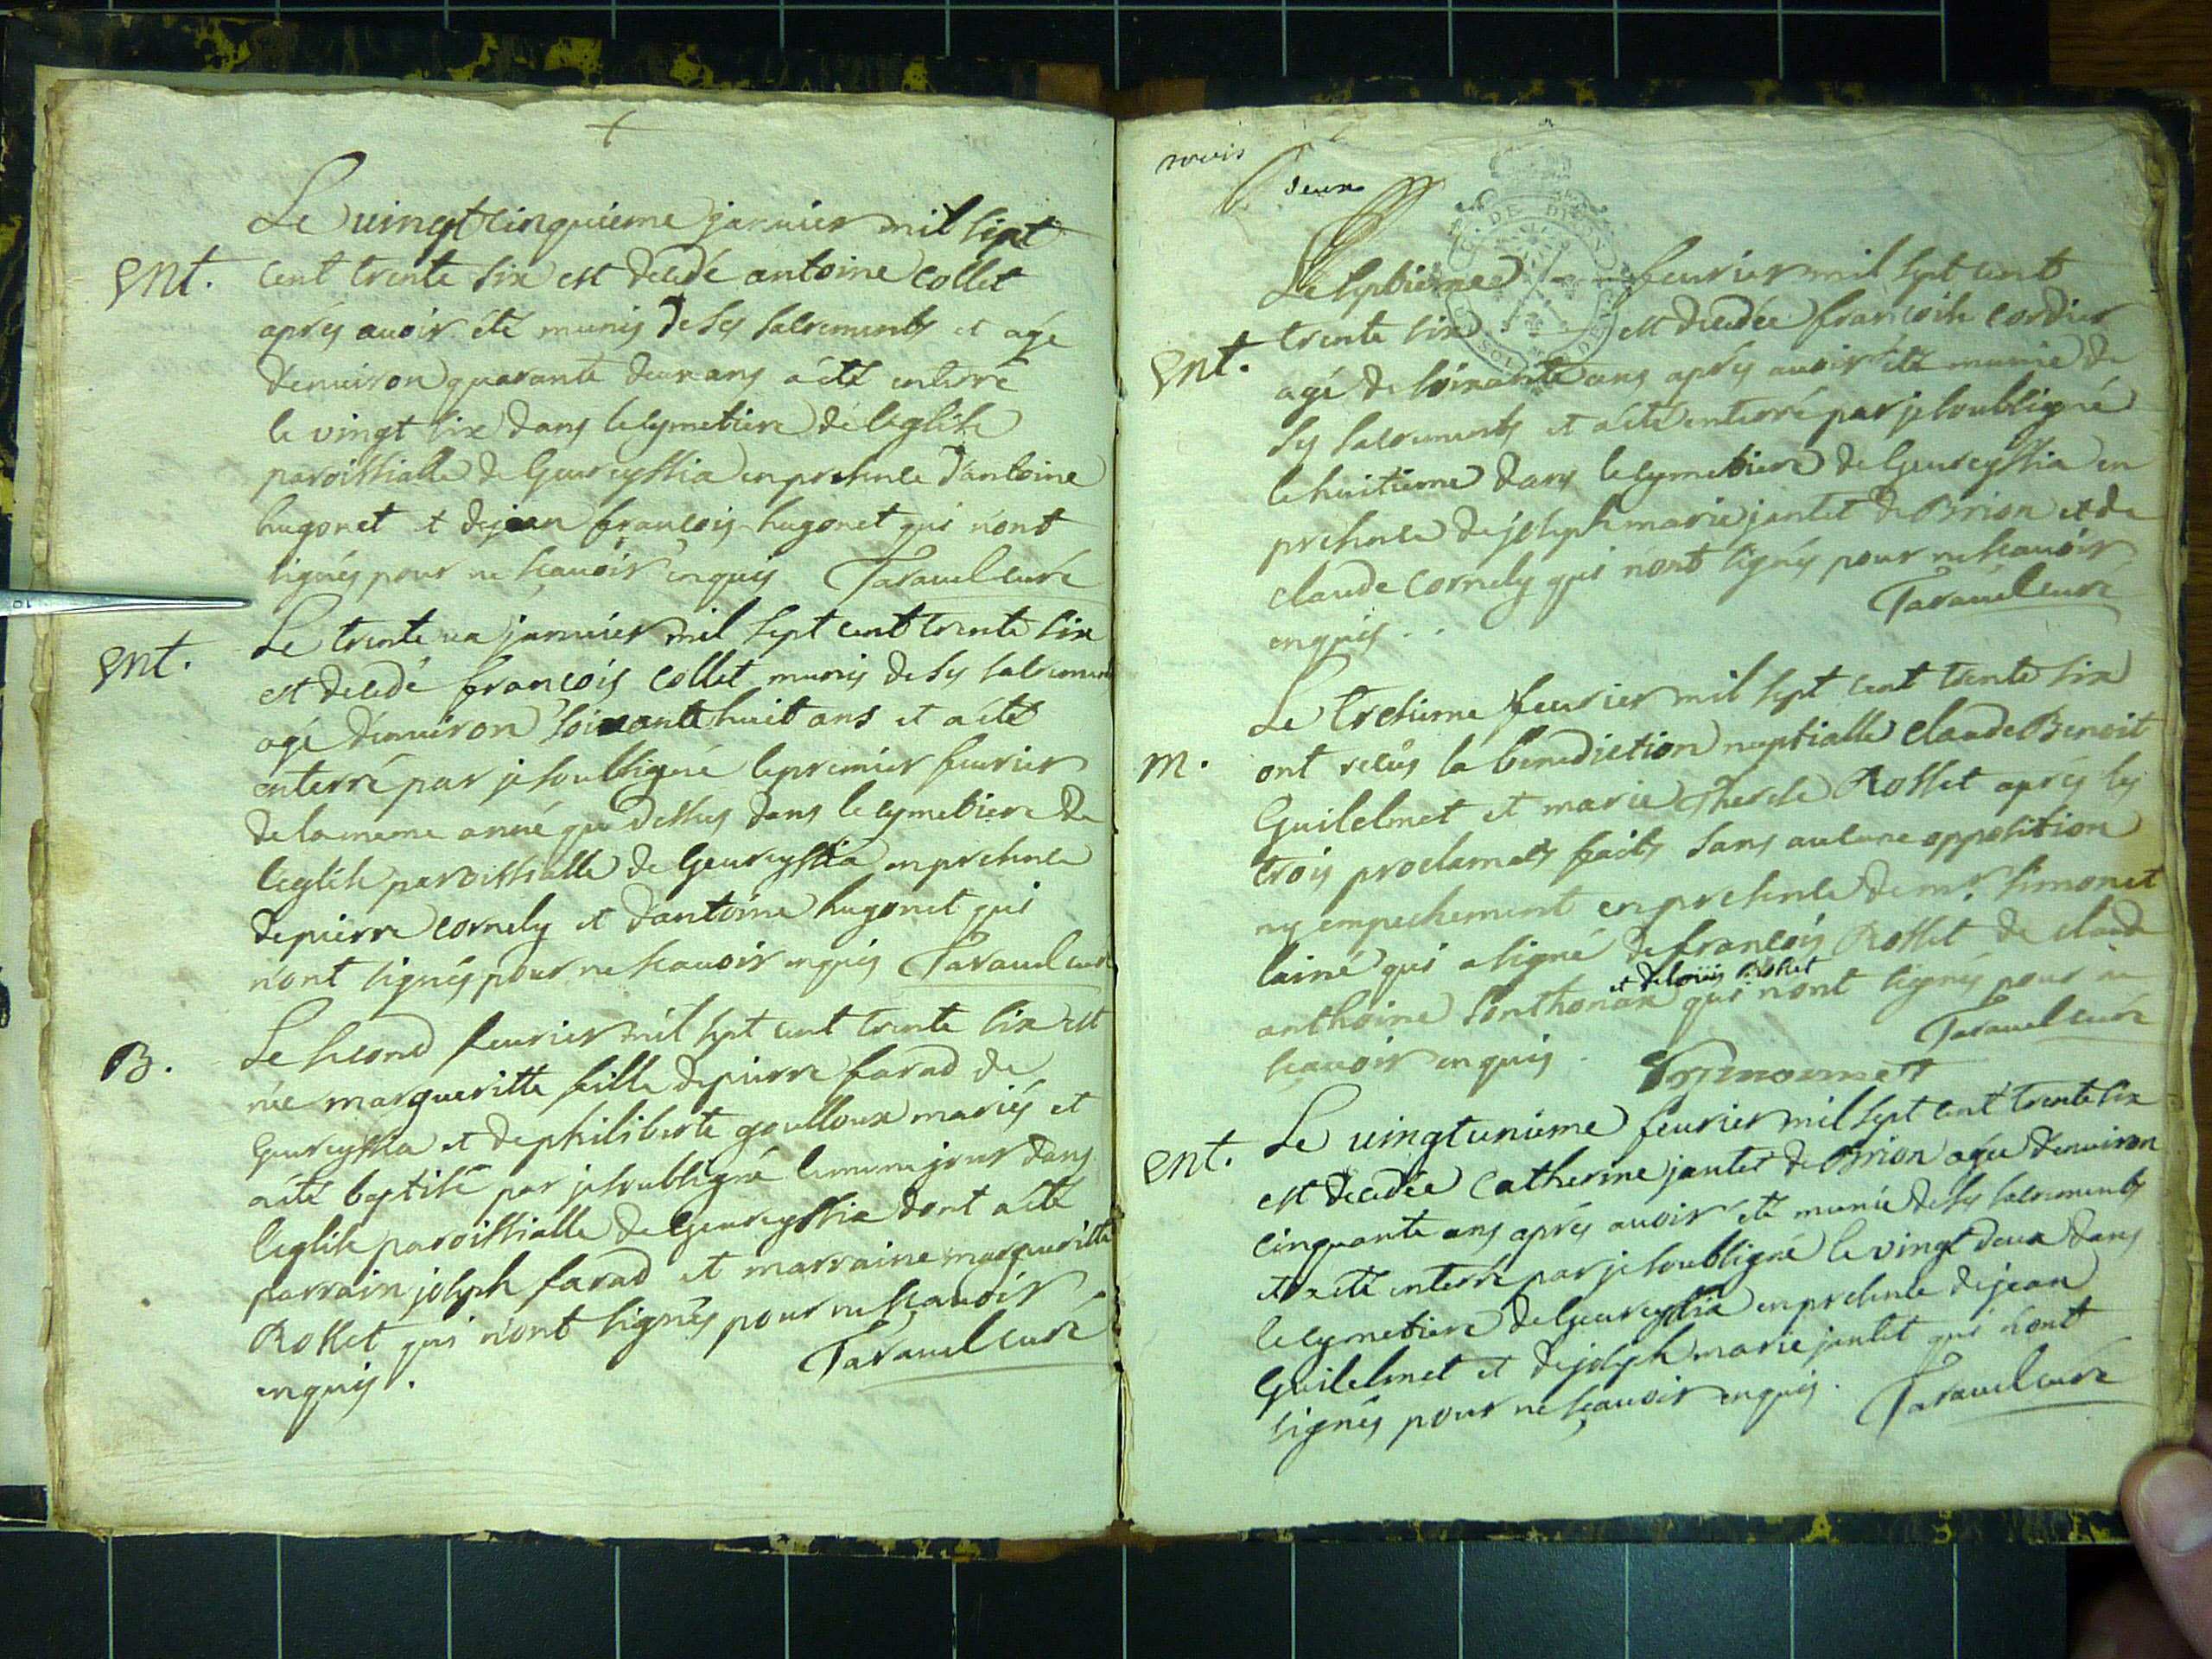 Le vingtcinquieme janvier mil sept
ent. cent trente six est decedé antoine collet
aprés avoir été munis de ses sacrements et agé
denuiron quarante deux ans a été enterré
le vingt six dans le cymetiere de leglise
paroissialle de Geureyssia en presence d'antoine
hugonet et de jean francois hugonet qui n'ont
signés pour ne scauoir enquis Tarauel curé
ent. Le trente un janvier mil sept cent trente six
est decedé francois collet munis de ses sacrements
agé denuiron soixante huit ans et a été
enterré par je soubsigné le premier feurier
de la meme anné que dessus dans le cymetiere de
leglise paroissialle de Geureyssia en presence
de pierre cornely et d'antoine hugonet qui
n'ont signés pour ne scauoir enquis Tarauel curé
B. Le second feurier mil sept cent trente six est
née margueritte fille de pierre farad de
Geureyssia et de philiberte goulloux mariés et
a été baptisé par je soubsigné le meme jour dans
leglise paroissialle de Geureyssia dont a été
parrain joseph farad et marraine margueritte
Rosset qui n'ont signés pour ne scauoir
enquis. Tarauel curé
deux
G. DE DIJON
Le septieme feurier mil sept cent
ent. trente six est decedée francoise cordier
agé de soixante ans aprés auoir été munie de
ses sacrements et a été enterré par je soubsigné
le huitieme dans le cymetiere de Geureyssia en
presence de joseph marie jantet de Brion et de
claude cornely qui n'ont signés pour ne scauoir
enquis.. Tarauel curé
Le tresieme feurier mil sept cent trente six
m. ont recûs la benediction nuptialle claude Benoit
Guilelmet et marie therese Rosset aprés les
trois proclamats faits sans aucune opposition
ny empechement en presence de mr. simonet
lainé qui a signé de francois Rosset de claude
anthoine sonthonax et de loüis Rosset qui n'ont signés pour ne
scauoir enquis. Tarauel curé
ent. Le vingtunieme feurier mil sept cent trente six
est decedée catherine jantet de Brion agée denuiron
cinquante ans aprés auoir été munie de ses sacrements
et a été enterré par je soubsigné le vingt deux dans
le cymetiere de Geureyssia en presence de jean
Guilelmet et de joseph marie jantet qui n'ont
signés pour ne scauoir enquis. Tarauel curé